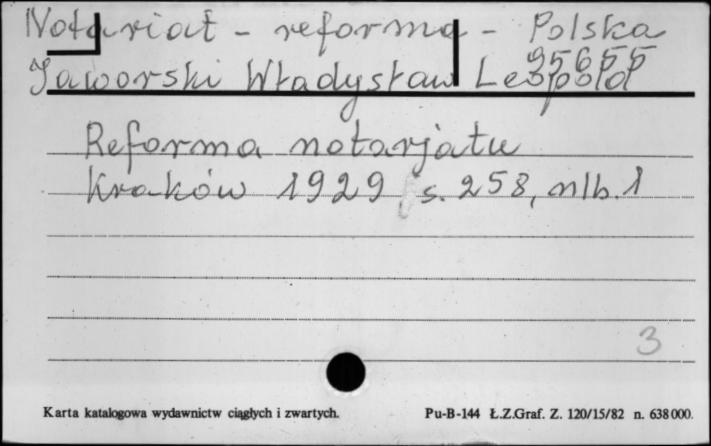 Notariat - reforma - Polska
95655
Jaworski Władysław Leopold
Reforma notarjatu
Kraków 1929 s. 258, nlb. 1
3
Karta katalogowa wydawnictw ciągłych i zwartych. Pu-B-144 Ł.Z.Graf. Z. 120/15/82 n. 638 000.